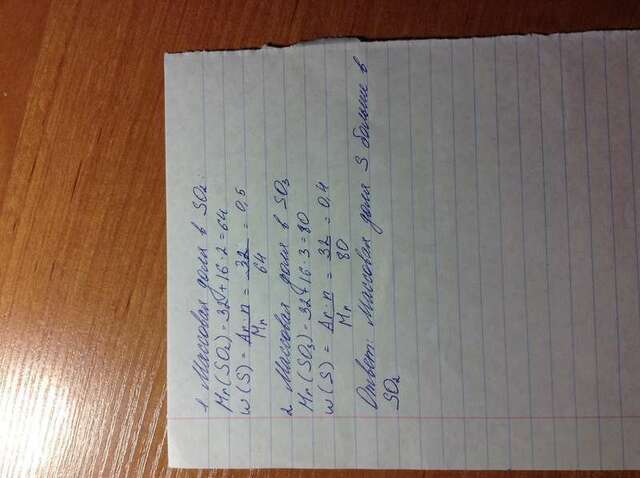 1 Массовая доля в SO₂
Mr(SO₂) - 32 + 16·2 = 64
w(S) = Ar·n / Mr = 32 / 64 = 0,5
2 Массовая доля в SO₃
Mr(SO₃) - 32 + 16·3 = 80
w(S) = Ar·n / Mr = 32 / 80 = 0,4
Ответ: Массовая доля S больше в
SO₂